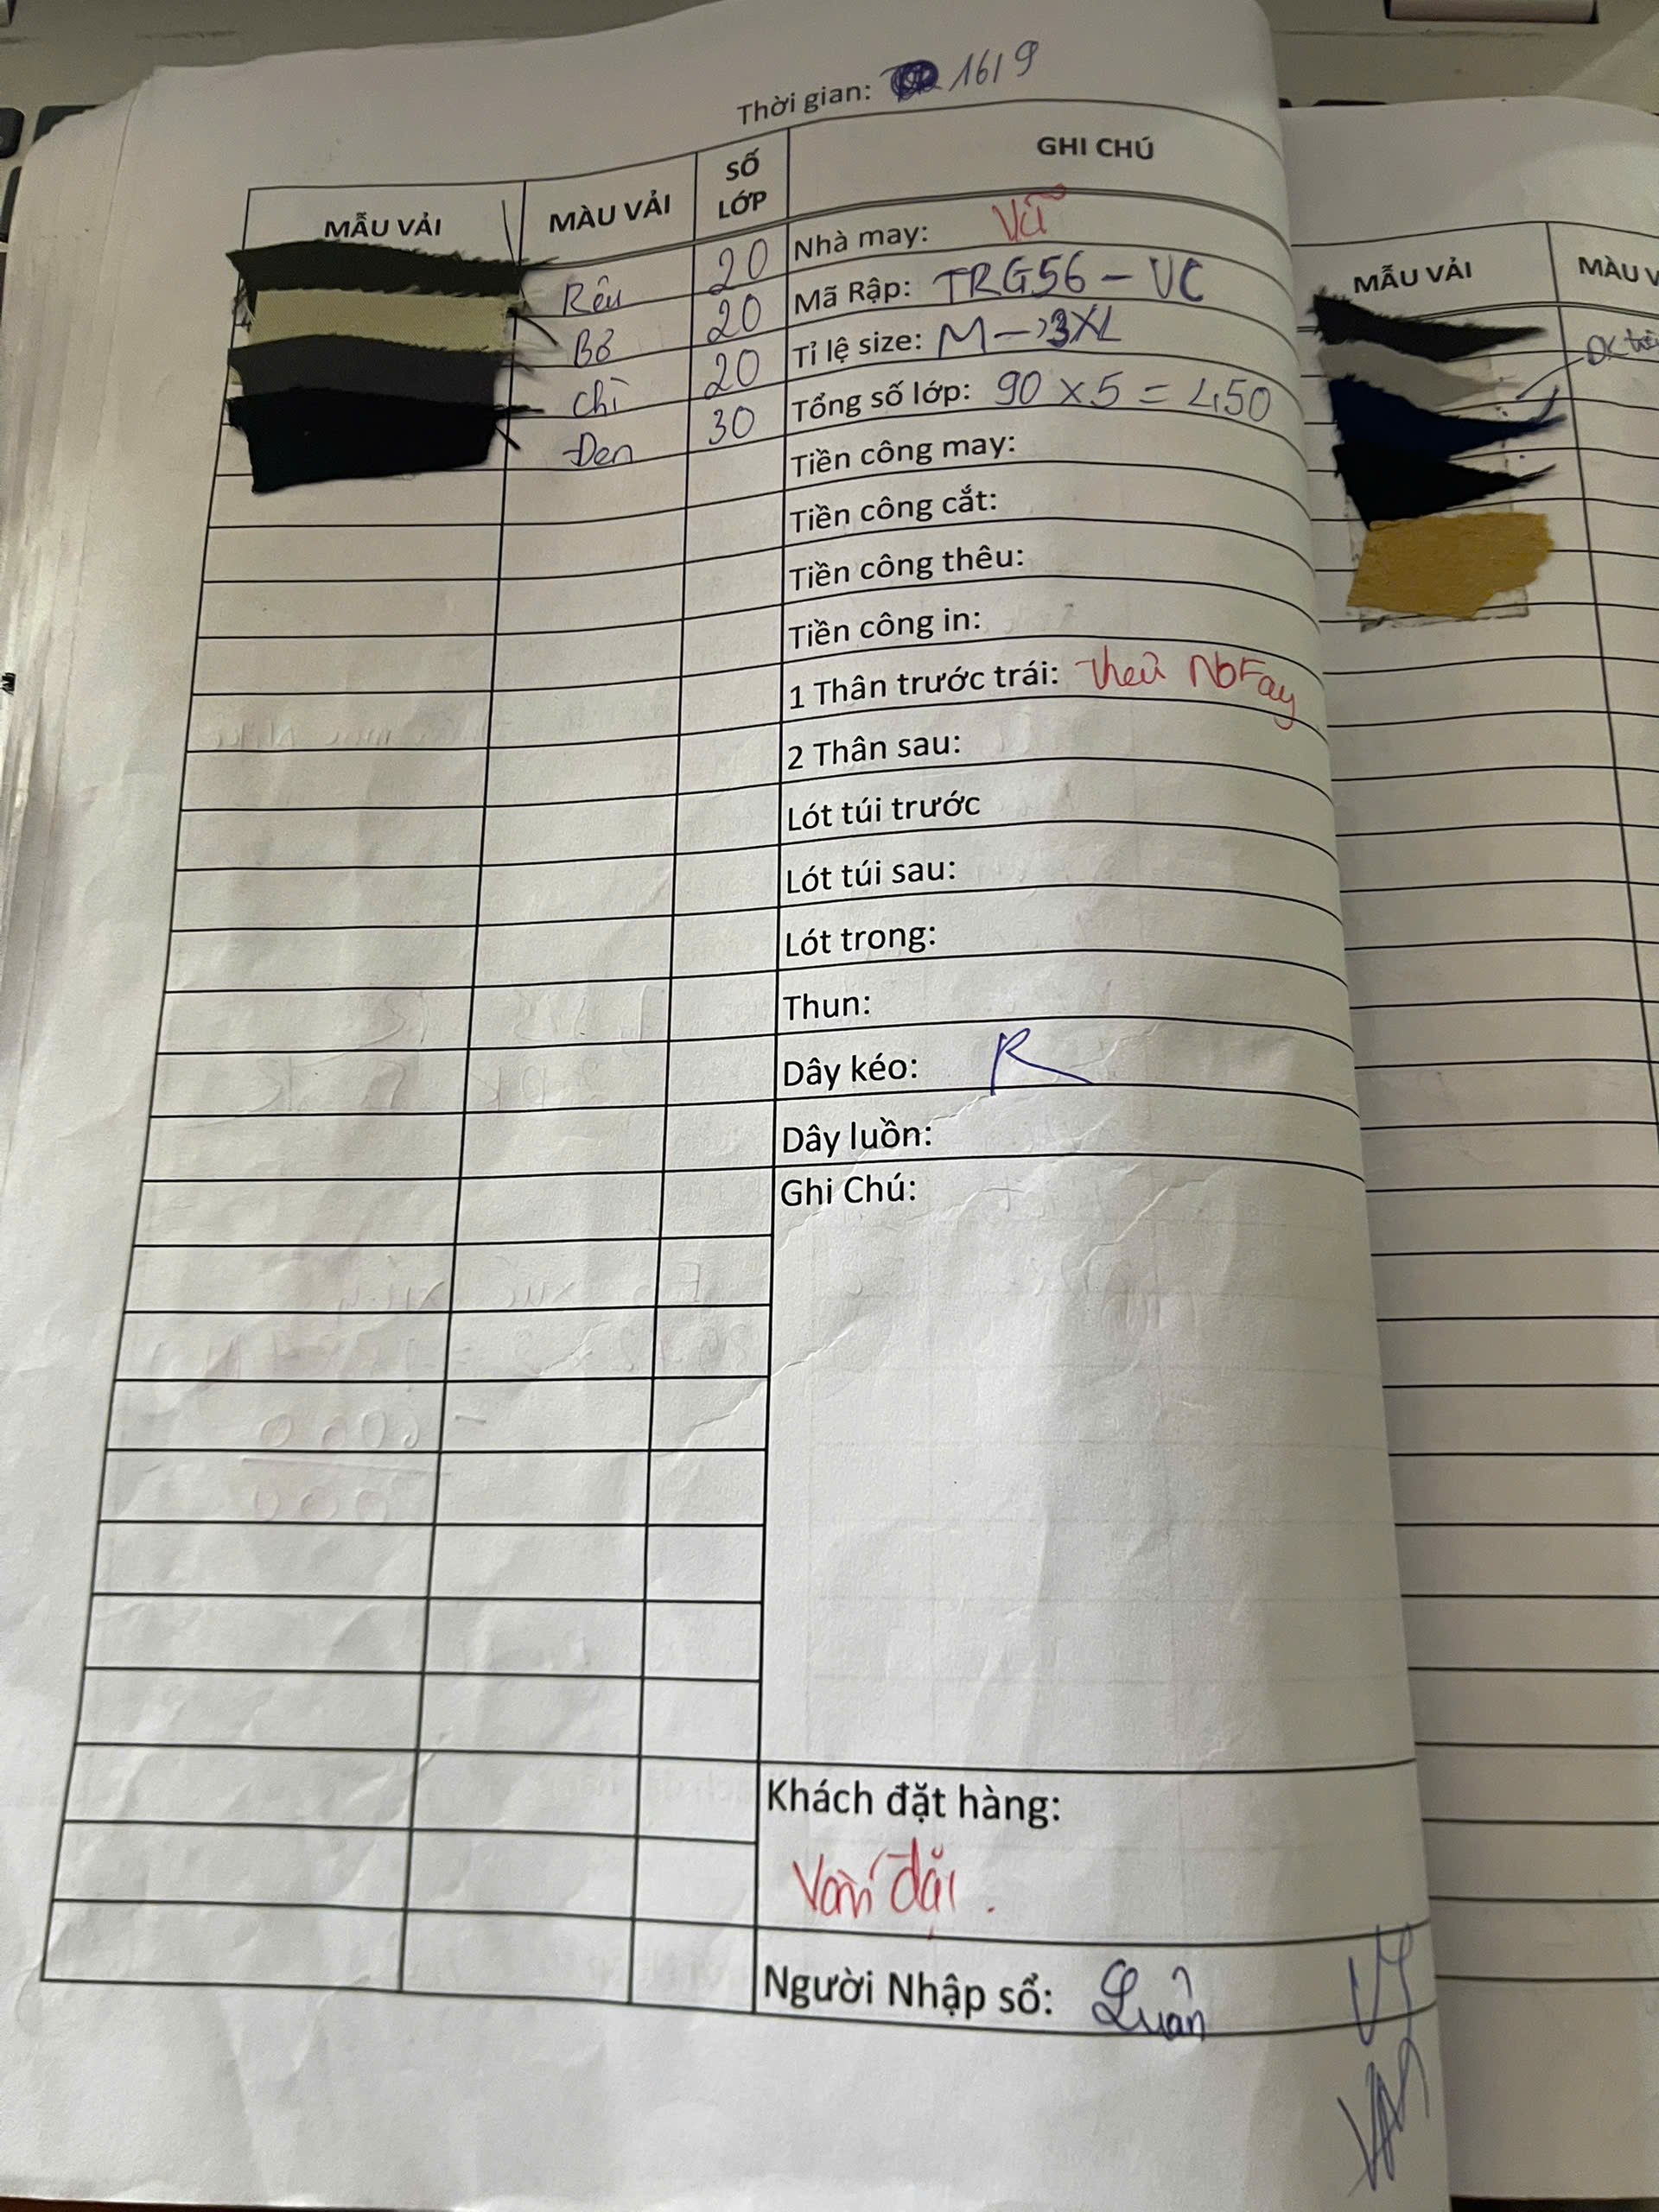 Thời gian: 16/9
MẪU VẢI MÀU VẢI SỐ LỚP GHI CHÚ
Rêu 20 Nhà may: Vũ
Bơ 20 Mã Rập: TRG56 - VC
Chì 20 Tỉ lệ size: M -> 3XL
Đen 30 Tổng số lớp: 90 x 5 = 450
Tiền công may:
Tiền công cắt:
Tiền công thêu:
Tiền công in:
1 Thân trước trái: thêu
2 Thân sau:
Lót túi trước
Lót túi sau:
Lót trong:
Thun:
Dây kéo: R
Dây luồn:
Ghi Chú:
Khách đặt hàng:
Văn đại.
Người Nhập sổ: Luân
MẪU VẢI MÀU V